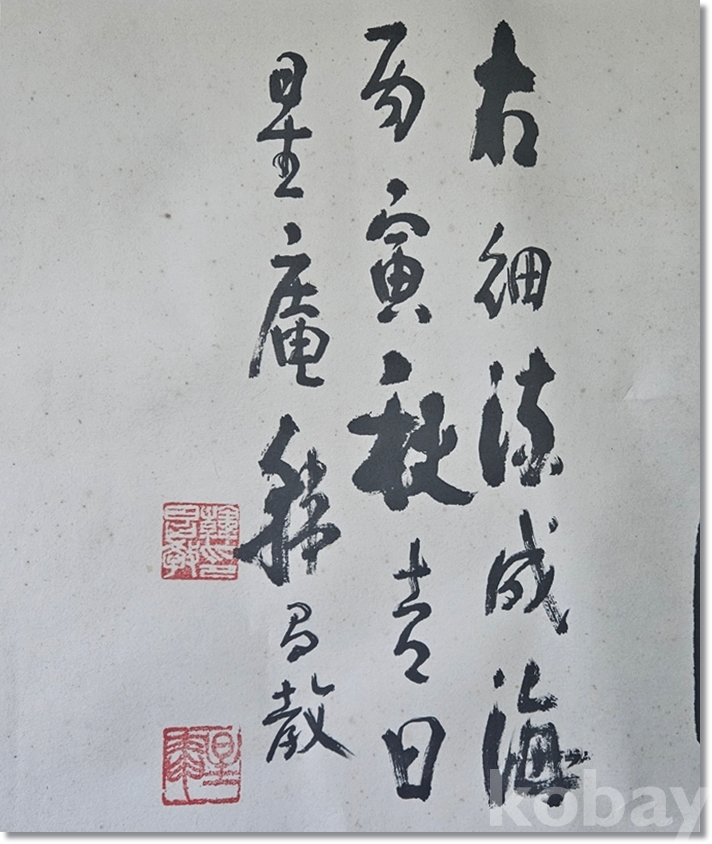 右細流成海
丙寅秋吉日
星庵 昌敎
昌敎
kobay